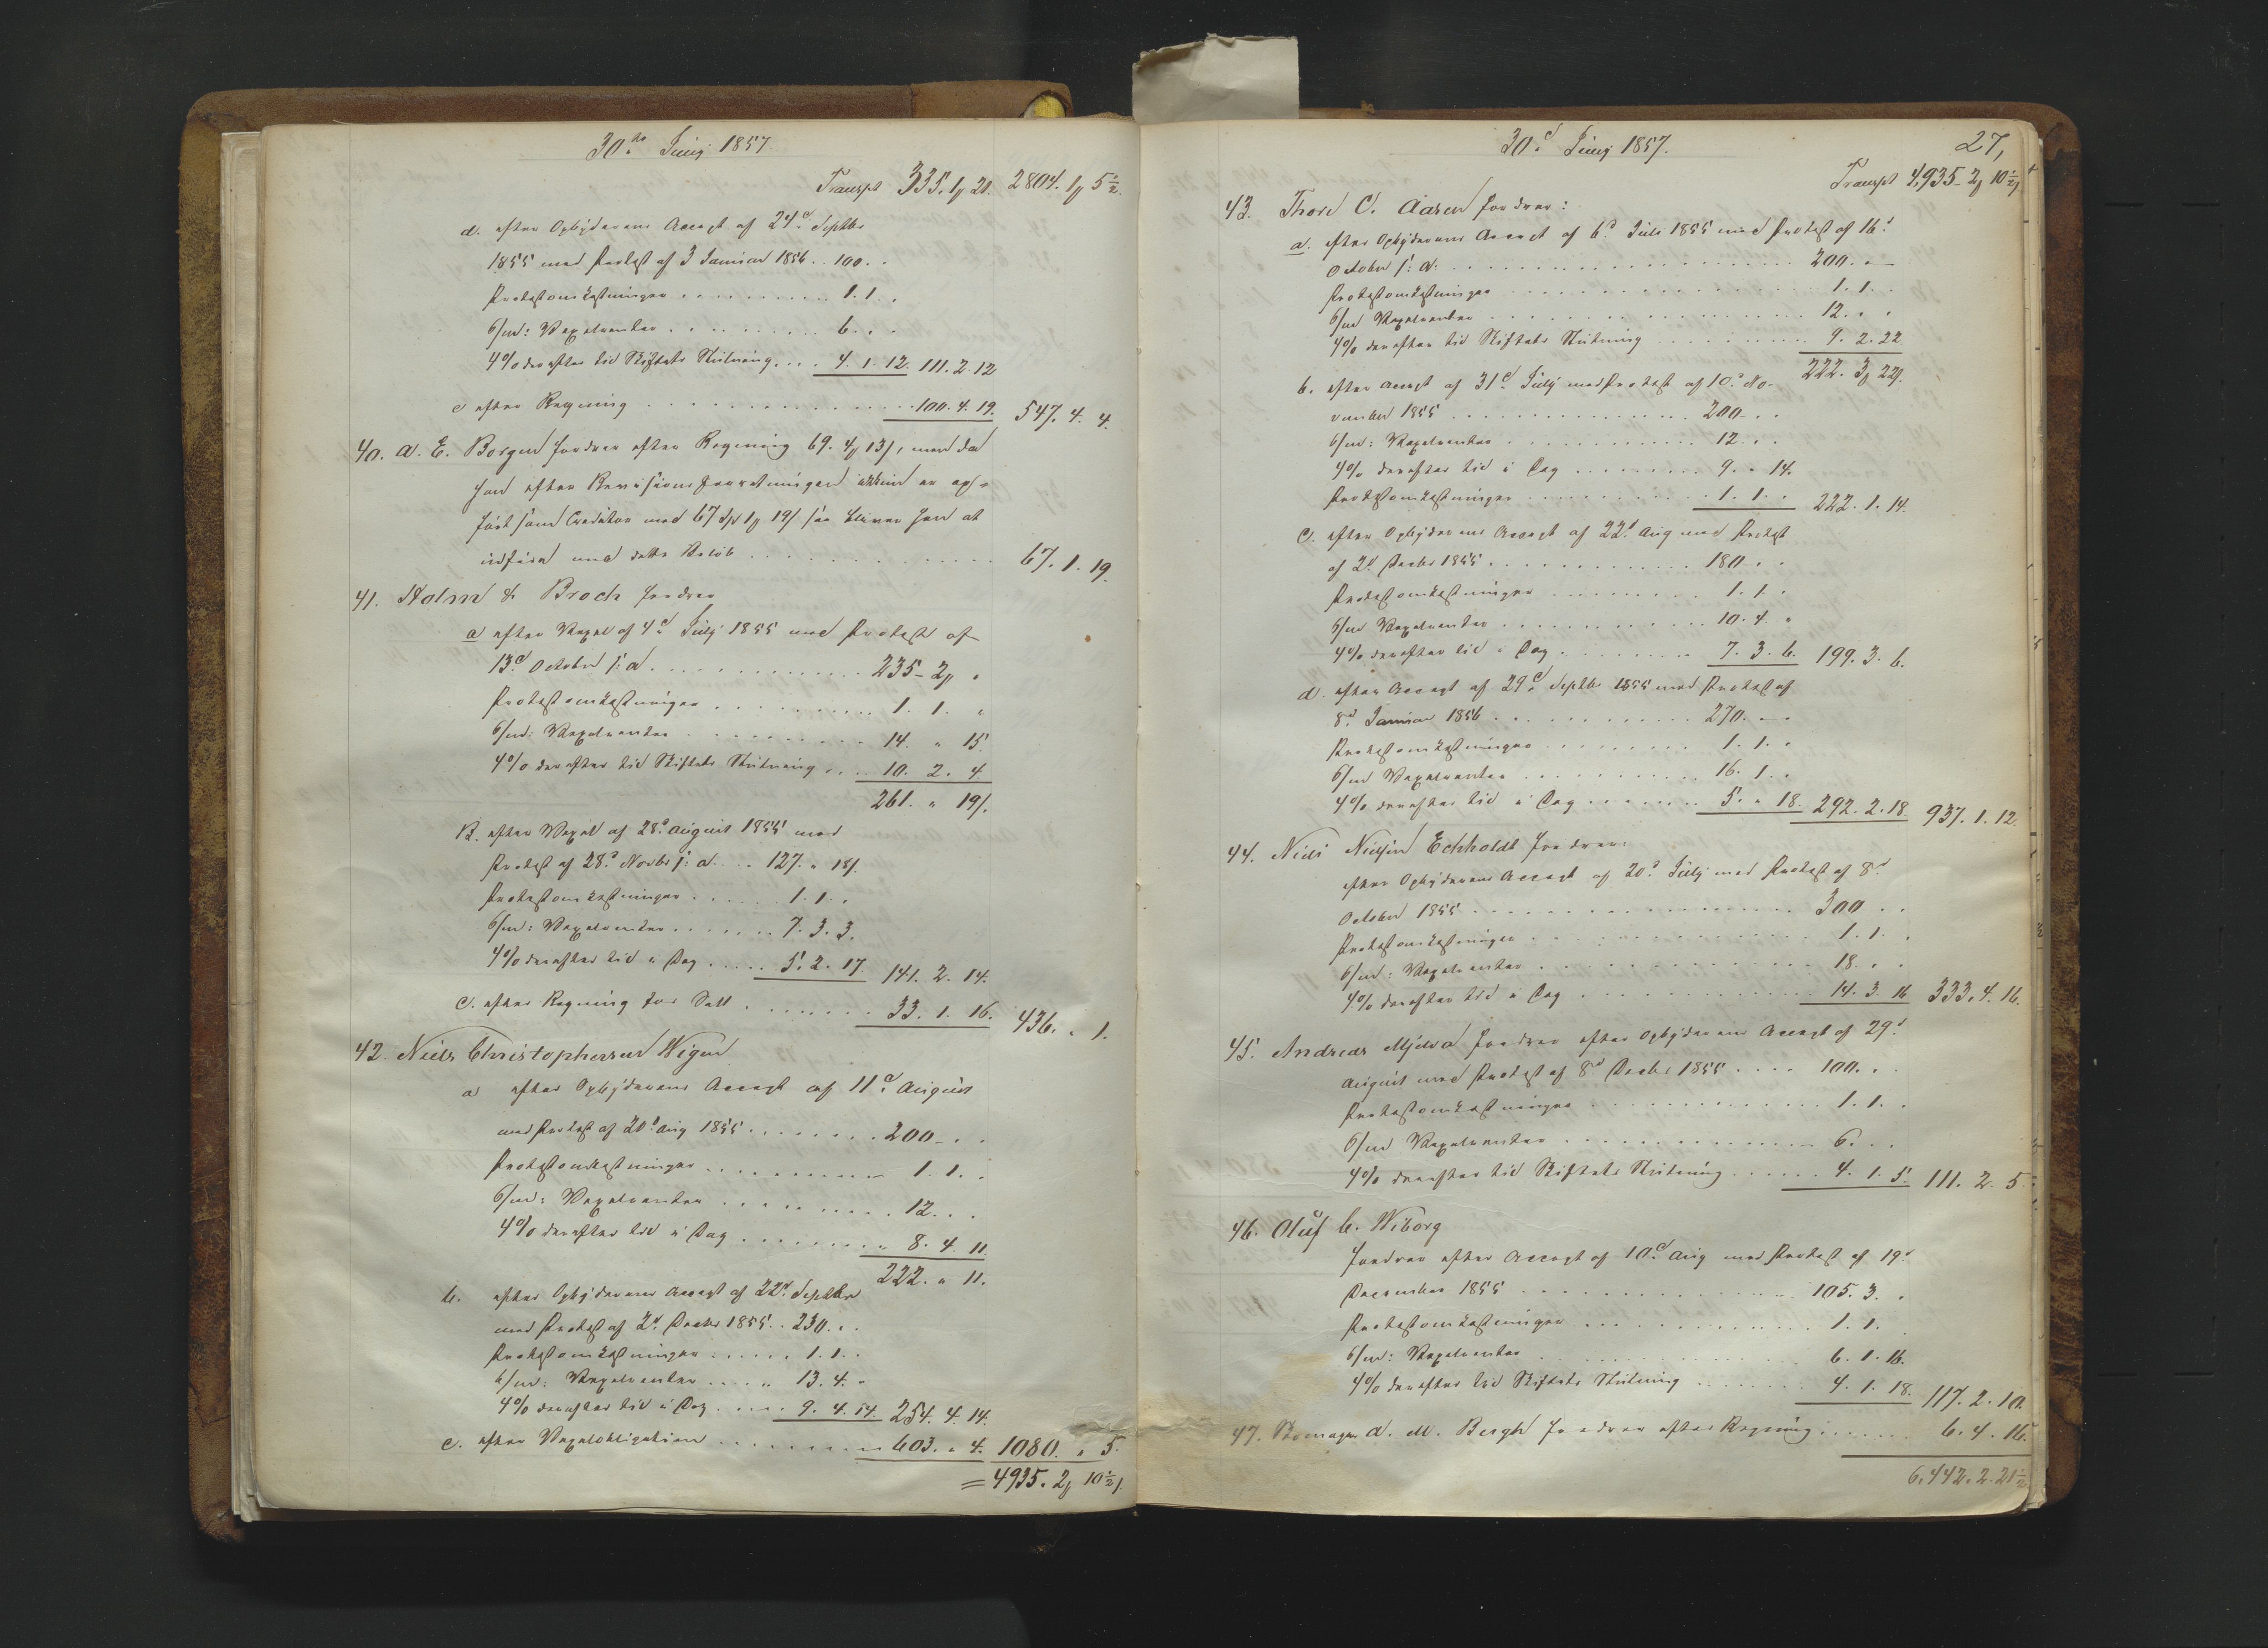 30te Juny 1857.
Transpt 335. 1 21. 2804. 1 5½.
d. efter Opbyderens Accept af 24d Septbr
1855 med Protest af 3 Januar 1856 . . 100. . .
Protestomkostninger . . . . . . . . . . 1. 1. .
6/m: Vexelrenter . . . . . . . . . . 6. . .
4% derefter til Skiftets Slutning . . . . 4. 1. 12. 111. 2. 12
e efter Regning . . . . . . . . . . . . . . . 100. 4. 19. 547. 4. 4.
40. A. E. Borgen fordrer efter Regning 69. 4 13, men da
han efter Revisionsforretningen er op-
ført som Creditor med 67 Spd 1 19 saa bliver han at
udføre med dette Beløb . . . . . . . . . . . . 67. 1. 19.
41. Holm & Broch fordrer
a efter Vexel af 4d July 1855 med Protest af
13d October s: A. . . . . . . . . . . . . 235 - 2 "
Protestomkostninger . . . . . . . . . . 1. 1. "
6/md: Vexelrenter . . . . . . . . . . 14. " 15.
4% derefter til Skiftets Slutning . . . 10. 2. 4
261. " 19.
B. efter Vexel af 28d August 1855 med
Protest af 28d Novbr s: A. . . . 127. " 18.
Protestomkostninger . . . . . . 1. 1. .
6/m: Vexelrenter . . . . . . . 7. 3. 3.
4% derefter til i Dag . . . . . 5. 2. 17. 141. 2. 14.
C. efter Regning for Salt . . . . . . . . 33. 1. 16. 436. " 1.
42. Niels Christophersen Wigen
a efter Opbyderens Accept af 11d August
med Protest af 20d Aug 1855 . . . . . . . . 200 - . .
Protestomkostninger . . . . . . . . . . 1. 1. .
6/m: Vexelrenter . . . . . . . . . . 12. . .
4% derefter til i Dag . . . . . . . . . 8. 4. 11.
222. " 11.
b. efter Opbyderens Accept af 22d Septbr
med Protest af 2d Decbr 1855 . . 230. . .
Protestomkostninger . . . . . . 1. 1. .
6/m: Vexelrenter . . . . . 13. 4. "
4% derefter til i Dag . . . . . 9. 4. 14. 254. 4. 14.
c. efter Vexelobligation . . . . . . . . . . 603. " 4. 1080. " 5.
= 4935. 2 10½
30d Juny 1857. 27,
Transpt 4,935 - 2 10½
43. Thore C. Aasen fordrer:
a. efter Opbyderens Accept af 6d Juli 1855 med Protest af 16d
October s: A. . . . . . . . . . . . . . . . . . . 200. . -
Protestomkostninger . . . . . . . . . . . . . . . 1. 1. .
6/m Vexelrenter . . . . . . . . . . . . . . . 12. . .
4% derefter til Skiftets Slutning . . . . . . . . . 9. 2. 22
222. 3 22.
b. efter Accept af 31d July med Protest af 10d No-
vember 1855 . . . . . . . . . . . . . . 200 - . .
6/m: Vexelrenter . . . . . . . . . . . 12. . .
4% derefter til i Dag . . . . . . . . . 9. " 14.
Protestomkostninger . . . . . . . . . . 1. 1. . 222. 1. 14.
C. efter Opbyderens Accept af 22d Aug med Protest
af 2d Decbr 1855 . . . . . . . . . . . . 180 - . .
Protestomkostninger . . . . . . . . . 1. 1. .
6/m Vexelrenter . . . . . . . . . . . 10. 4. "
4% derefter til i Dag . . . . . . . . 7. 3. 6. 199. 3. 6.
d. efter Accept af 29d Septbr 1855 med Protest af
8d Januar 1856 . . . . . . . . . . . . 270. - -
Protestomkostninger . . . . . . . . 1. 1. .
6/m Vexelrenter . . . . . . . . . . 16. 1. .
4% derefter til i Dag . . . . . . . 5. " 18. 292. 2. 18. 937. 1. 12
44. Niels Nielsen Echholdt fordrer:
efter Opbyderens Accept af 20d July med Protest af 8d
October 1855 . . . . . . . . . . . . . . . . . 300 . .
Protestomkostninger . . . . . . . . . . . . . . 1. 1. .
6/m: Vexelrenter . . . . . . . . . . . . . . 18. . .
4% derefter til i Dag . . . . . . . . . . . . . 14. 3. 16 333. 4. 16.
45. Andreas Mjelva fordrer efter Opbyderens Accept af 29d
August med Protest af 8d Decbr 1855 . . . . 100. . .
Protestomkostninger . . . . . . . . . . . . 1. 1. .
6/m Vexelrenter . . . . . . . . . . . . . 6. . .
4% derefter til Skiftets Slutning . . . . . . 4. 1. 5. 111. 2. 5.
46. Oluf C. Wiborg
fordrer efter Accept af 10d Aug med Protest af 19d
December 1855 . . . . . . . . . . . . . . . 105. 3. .
Protestomkostninger . . . . . . . . . . . . 1. 1.
6/m: Vexelrenter . . . . . . . . . . . . . 6. 1. 16.
4% derefter til Skiftets Slutning . . . . . . . 4. 1. 18. 117. 2. 10.
47. Skomager A. M. Bergh fordrer efter Regning . . . . . . 6. 4. 16.
6,442. 2. 21½